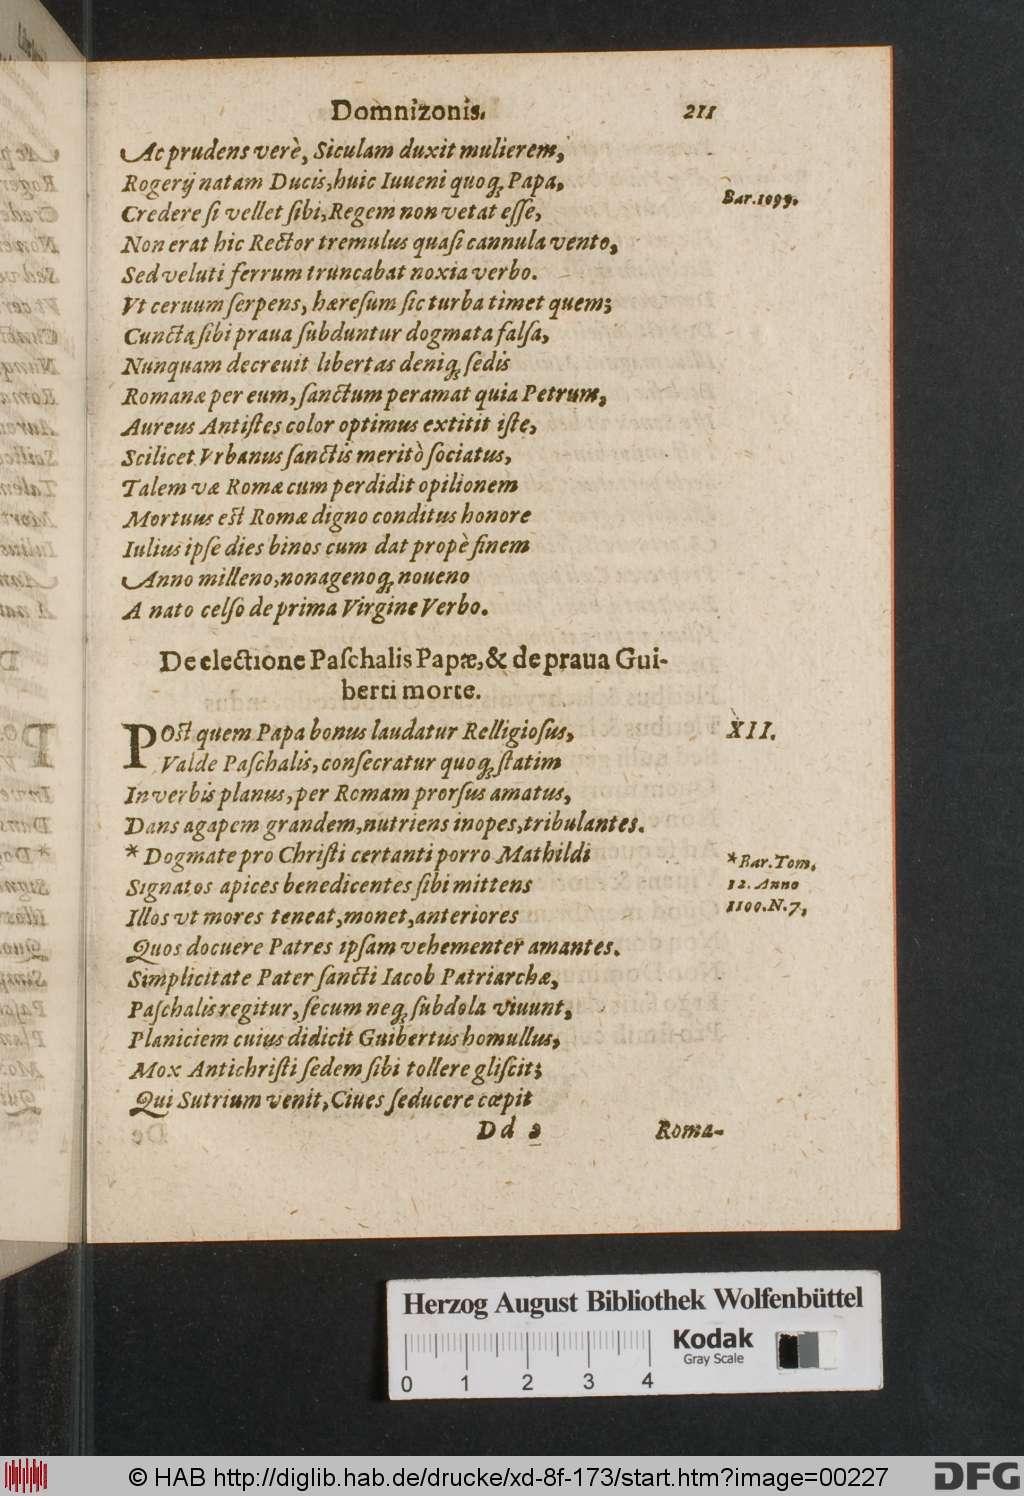 Domnizonis. 211
Ac prudens verè, Siculam duxit mulierem,
Rogerij natam Ducis, huic Iuueni quoq; Papa,
Bar. 1099.
Credere si vellet sibi, Regem non vetat esse,
Non erat hic Rector tremulus quasi cannula vento,
Sed veluti ferrum truncabat noxia verbo.
Vt ceruum serpens, hæresum sic turba timet quem;
Cuncta sibi praua subduntur dogmata falsa,
Nunquam decreuit libertas deniq; sedis
Romanæ per eum, sanctum peramat quia Petrum,
Aureus Antistes color optimus extitit iste,
Scilicet Vrbanus sanctis meritò sociatus,
Talem væ Romæ cum perdidit opilionem
Mortuus est Romæ digno conditus honore
Iulius ipse dies binos cum dat propè finem
Anno milleno, nonagenoq; noueno
A nato celso de prima Virgine Verbo.
De electione Paschalis Papæ, & de praua Gui-
berti morte.
POst quem Papa bonus laudatur Relligiosus,
XII.
Valde Paschalis, consecratur quoq; statim
In verbis planus, per Romam prorsus amatus,
Dans agapem grandem, nutriens inopes, tribulantes.
* Dogmate pro Christi certanti porro Mathildi
*Bar. Tom.
12. Anno
1100. N. 7,
Signatos apices benedicentes sibi mittens
Illos vt mores teneat, monet, anteriores
Quos docuere Patres ipsam vehementer amantes.
Simplicitate Pater sancti Iacob Patriarchæ,
Paschalis regitur, secum neq; subdola viuunt,
Planiciem cuius didicit Guibertus homullus,
Mox Antichristi sedem sibi tollere gliscit;
Qui Sutrium venit, Ciues seducere cœpit
Dd 2 Roma-
Herzog August Bibliothek Wolfenbüttel
Kodak
Gray Scale
0 1 2 3 4
© HAB http://diglib.hab.de/drucke/xd-8f-173/start.htm?image=00227
DFG